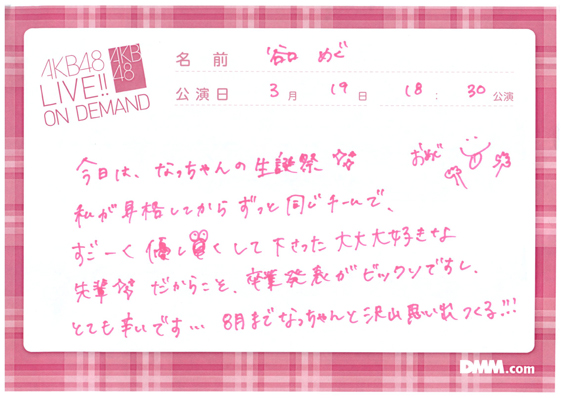 AKB48
LIVE!!
ON DEMAND
AKB
48
名前 谷口 めぐ
公演日 3月 19日 18:30公演
今日は、なっちゃんの生誕祭☆☆
おめぐ
私が昇格してからずっと同じチームで、
すごーく優しくして下さった大大大好きな
先輩☆☆ だからこそ、卒業発表がビックリですし、
とても辛いです… 8月までなっちゃんと沢山思い出つくる!!!
DMM.com